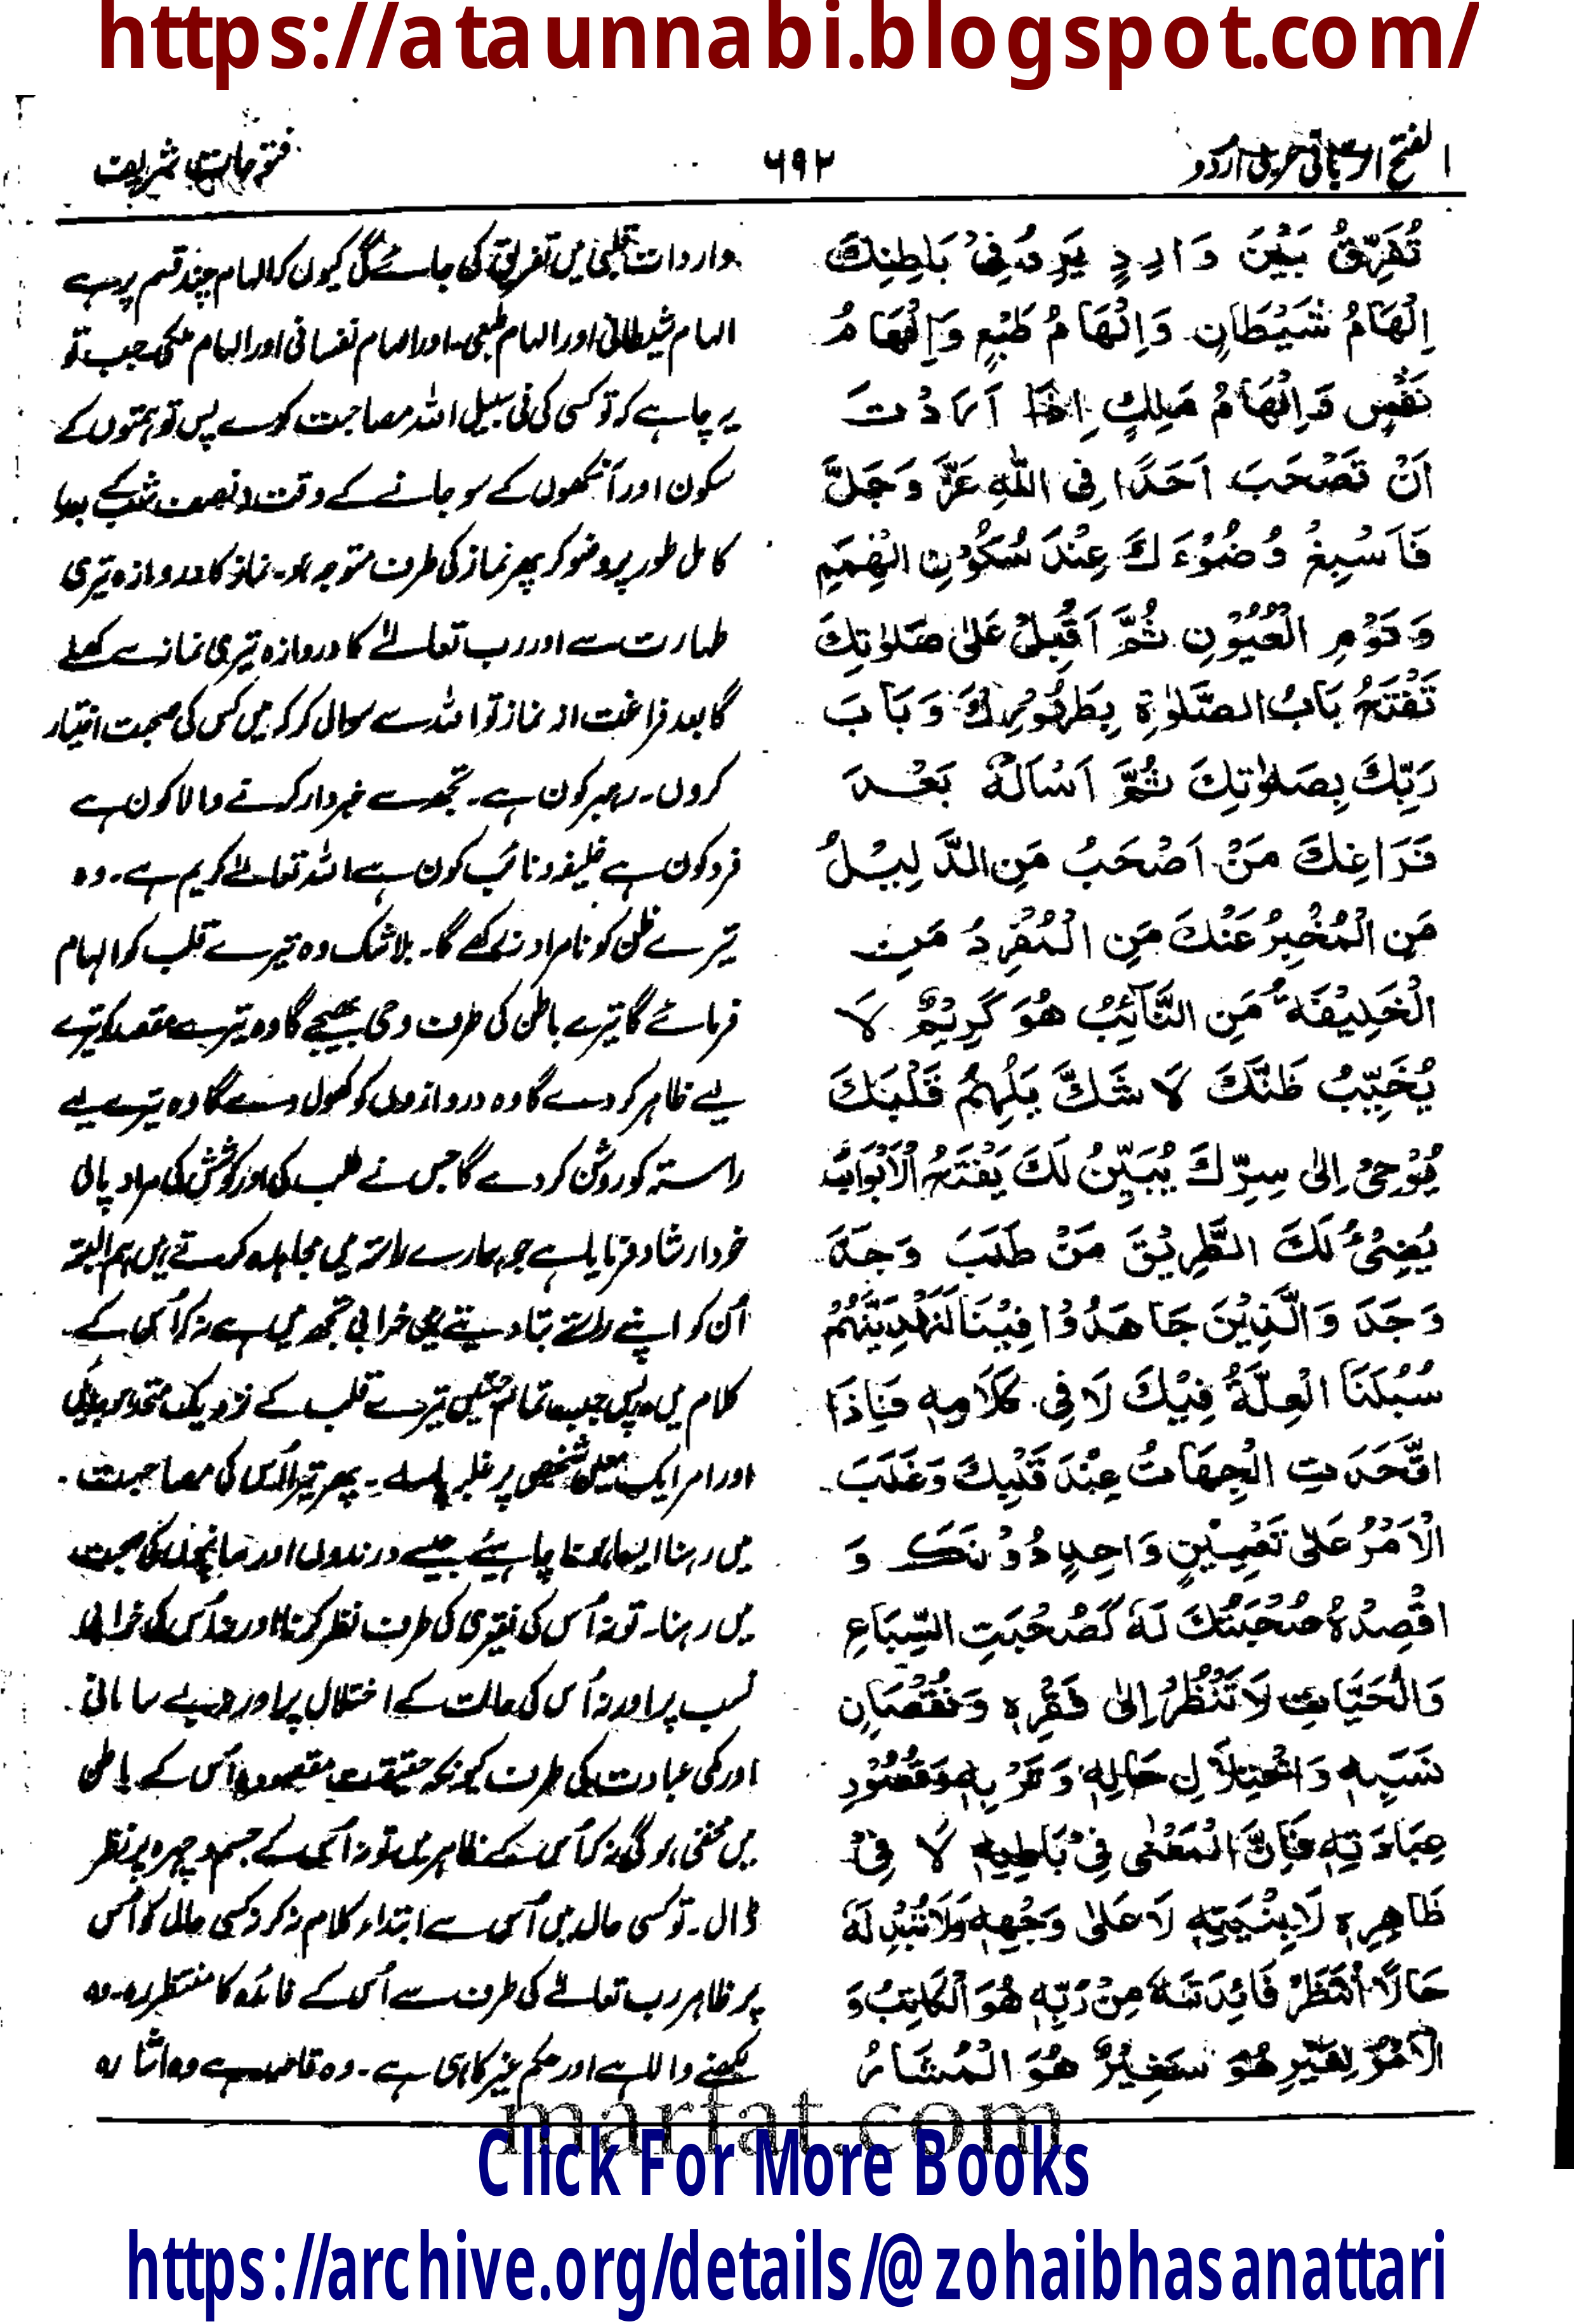 https://ataunnabi.blogspot.com/
الفتح الربانی عربی اردو
۶۹۲
فتوحات شریف
تُفَرِّقُ بَيْنَ وَارِدٍ يَرِدُ فِيْ بَاطِنِكَ
اِلْهَامُ شَيْطَانٍ وَاِلْهَامُ طَبْعٍ وَاِلْهَامُ
نَفْسٍ وَاِلْهَامُ مَلِكٍ اِذَا اَرَدْتَ
اَنْ تَصْحَبَ اَحَدًا فِی اللهِ عَزَّ وَجَلَّ
فَاَسْبِغْ وُضُوْءَكَ عِنْدَ سُكُوْنِ الْهِمَمِ
وَنَوْمِ الْعُيُوْنِ ثُمَّ اَقْبِلْ عَلىٰ صَلوٰتِكَ
تَفْتَحُ بَابَ الصَّلوٰةِ بِطَهُوْرِكَ وَبَابَ
رَبِّكَ بِصَلوٰتِكَ ثُمَّ اَسْاَلْهُ بَعْدَ
فَرَاغِكَ مَنْ اَصْحَبُ مَنِ الدَّلِيْلُ
مَنِ الْمُخْبِرُ عَنْكَ مَنِ الْمُفْرِدُ مَنِ
الْخَلِيْفَةُ مَنِ النَّآئِبُ هُوَ كَرِيْمٌ لَا
يُخَيِّبُ ظَنَّكَ لَا شَكَّ يُلْهِمُ قَلْبَكَ
يُوْحِیْ اِلىٰ سِرِّكَ يُبَيِّنُ لَكَ يَفْتَحُ الْاَبْوَابَ
يُضِیْءُ لَكَ الطَّرِيْقَ مَنْ طَلَبَ وَجَدَّ
وَجَدَ وَالَّذِيْنَ جَاهَدُوْا فِيْنَا لَنَهْدِيَنَّهُمْ
سُبُلَنَا الْعِلَّةُ فِيْكَ لَا فِی كَلَامِهٖ فَاِذَا
اتَّحَدَتِ الْجِهَاتُ عِنْدَ قَلْبِكَ وَغَلَبَ
الْاَمْرُ عَلىٰ تَعْيِيْنِ وَاحِدٍ دُوْنَكَ وَ
اقْصِدْهُ صُحْبَتُكَ لَهٗ كَصُحْبَتِ السِّبَاعِ
وَالْحَيَّاتِ لَا تَنْظُرْ اِلىٰ فَقْرِهٖ وَنُقْصَانِ
نَسَبِهٖ وَاخْتِلَالِ حَالِهٖ وَعُرْيِهٖ وَقُصُوْدِ
عِبَادَتِهٖ فَاِنَّ الْمَعْنٰى فِیْ بَاطِنِهٖ لَا فِیْ
ظَاهِرِهٖ لَا بِنْيَتِهٖ لَا عَلىٰ وَجْهِهٖ وَلَا تُبْدِ لَهٗ
حَالًا انْتَظِرْ فَائِدَتَهٗ مِنْ رَّبِّهٖ هُوَ الْكَاتِبُ وَ
الْاَمْرُ لِغَيْرِهٖ هُوَ سَفِيْرٌ هُوَ الْمُشَارُ
واردات قلبی میں تفریق کی جائے گی کیوں کہ الہام چند قسم پر ہے
الہام شیطانی اور الہام طبعی اور الہام نفسانی اور الہام ملکی جب تو
یہ چاہے کہ تو کسی کی فی سبیل اللہ مصاحبت کرے پس تو ہمتوں کے
سکون اور آنکھوں کے سو جانے کے وقت نصف شب کے بعد
کامل طور پر وضو کر پھر نماز کی طرف متوجہ ہو۔ نماز کا دروازہ تیری
طہارت سے اور رب تعالےٰ کا دروازہ تیری نماز سے کھلے
گا بعد فراغت از نماز تو اللہ سے سوال کر کہ میں کس کی صحبت اختیار
کروں۔ رہبر کون ہے۔ تجھ سے خبردار کرنے والا کون ہے
فرد کون ہے خلیفہ و نائب کون ہے اللہ تعالےٰ کریم ہے۔ وہ
تیرے ظن کو نامراد نہ رکھے گا۔ بلاشک وہ تیرے قلب کو الہام
فرمائے گا تیرے باطن کی طرف وحی بھیجے گا وہ تیرے مقصد کو تیرے
لیے ظاہر کر دے گا وہ دروازوں کو کھول دے گا وہ تیرے لیے
راستہ کو روشن کر دے گا جس نے طلب کی اور کوشش کی مراد پالی
خود ارشاد فرمایا ہے جو ہمارے راستہ میں مجاہدہ کرتے ہیں ہم البتہ
اُن کو اپنے راستے بتا دیتے ہیں خرابی تجھ میں ہے نہ کہ اُس کے
کلام میں پس جب تمام جہتیں تیرے قلب کے نزدیک متحد ہو جائیں
اور امر ایک معین شخص پر غلبہ پالے۔ پھر تیرا اُس کی مصاحبت
میں رہنا ایسا ہونا چاہیئے جیسے درندوں اور سانپوں کی صحبت
میں رہنا۔ تو نہ اُس کی فقیری کی طرف نظر کرنا اور نہ اُس کی خرابی
نسب پر اور نہ اُس کی حالت کے اختلال پر اور بے سامانی
اور کمی عبادت کی طرف کیونکہ حقیقت مقصود اُس کے باطن
میں مخفی ہوگی نہ کہ اُس کے ظاہر میں تو نہ اُس کے جسم و چہرہ پر نظر
ڈال۔ تو کسی حال میں اُس سے ابتداء کلام نہ کر نہ کسی حال کو اُس
پر ظاہر رب تعالےٰ کی طرف سے اُس کے فائدہ کا منتظر رہ۔ وہ
لکھنے والا ہے اور حکم غیر کا ہی ہے۔ وہ قاصد ہے وہ اشارہ
marfat.com
Click For More Books
https://archive.org/details/@zohaibhasanattari